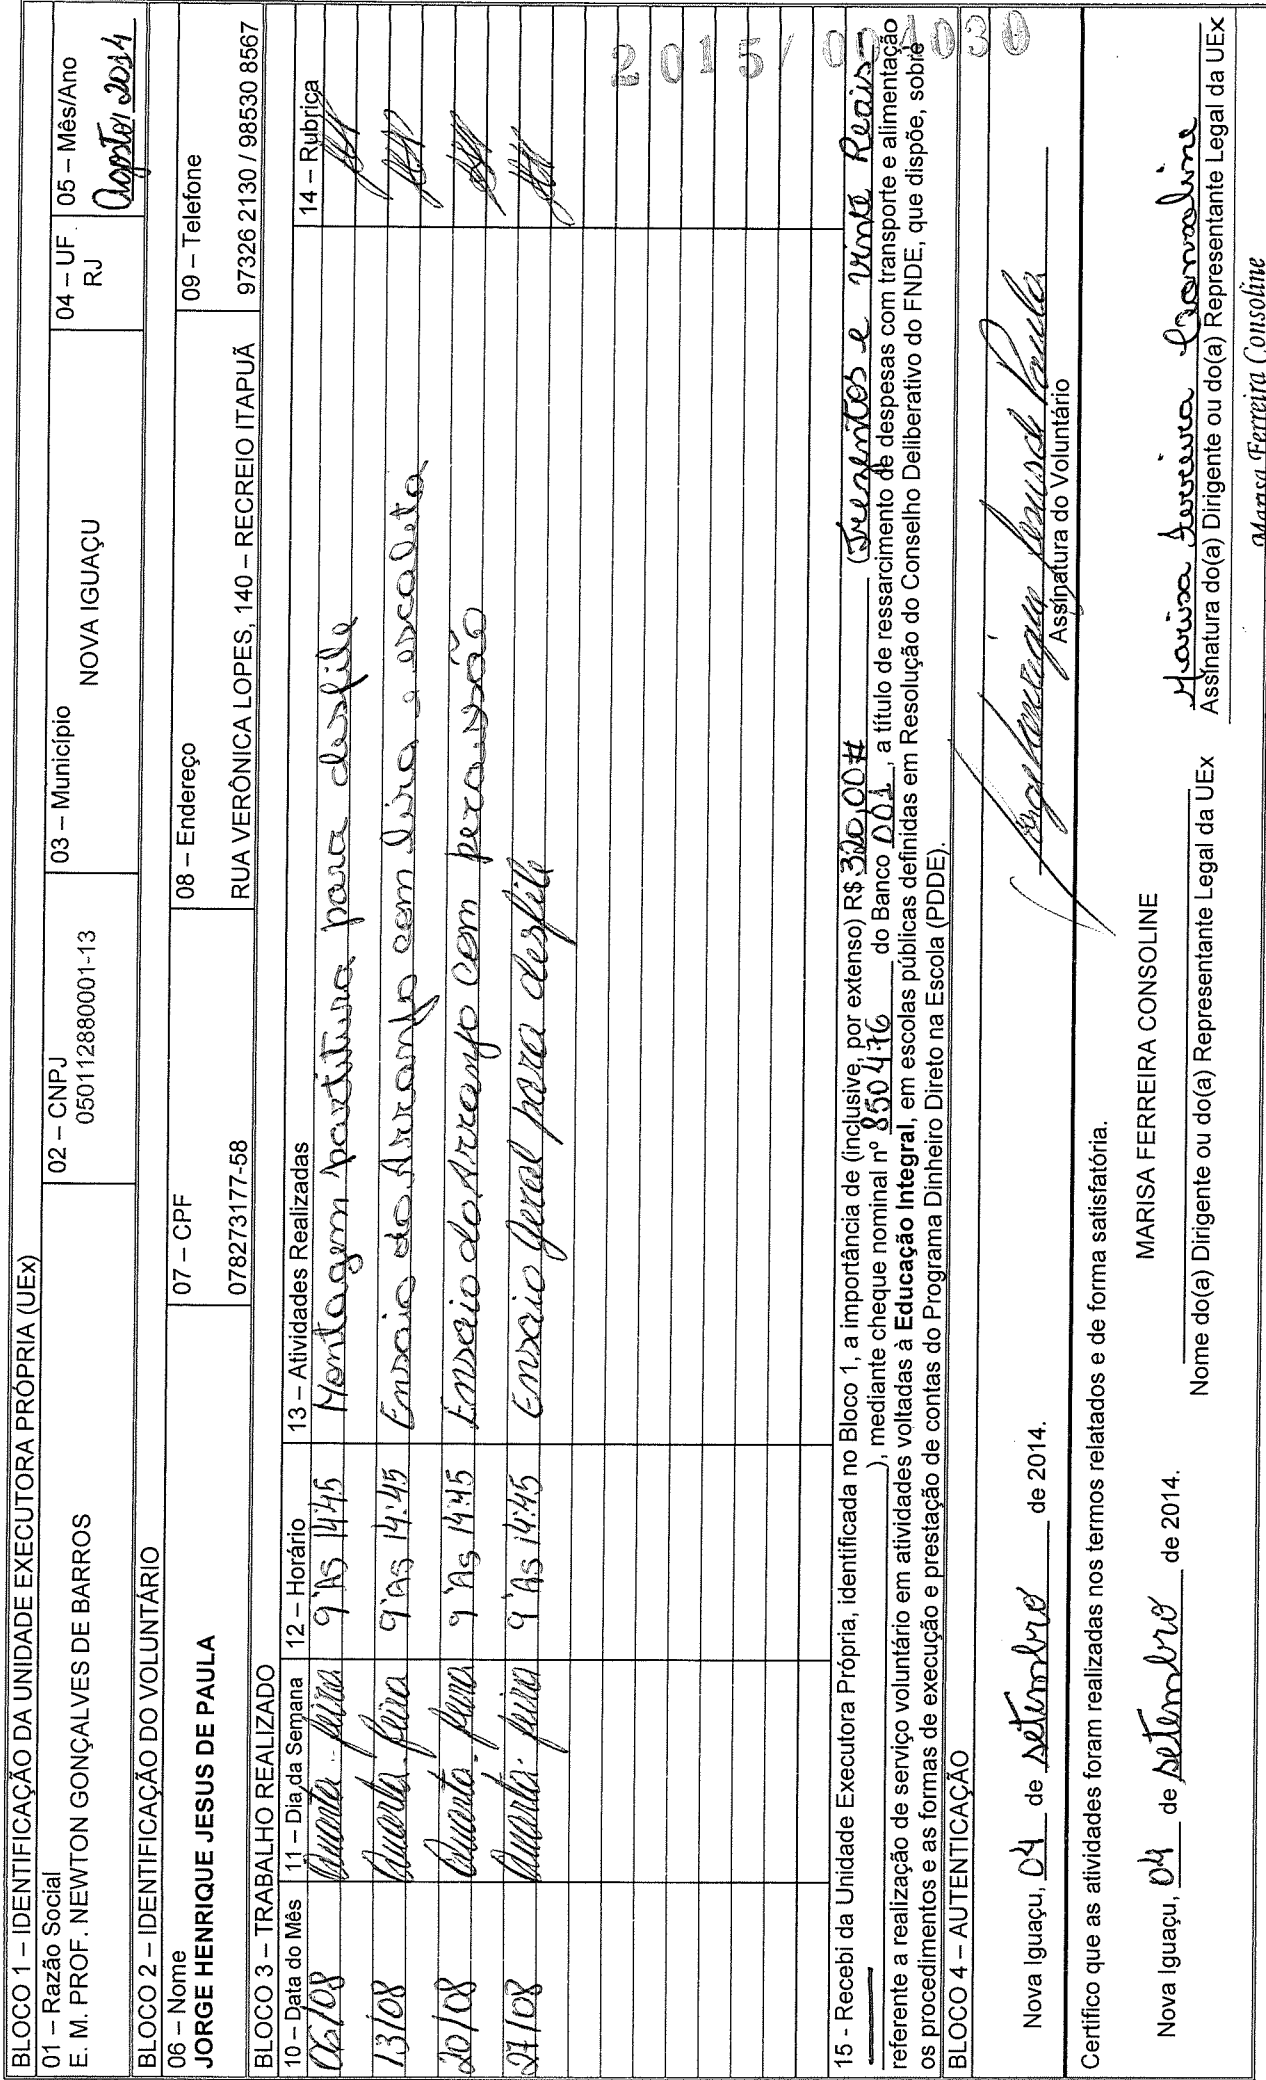 BLOCO 1 – IDENTIFICAÇÃO DA UNIDADE EXECUTORA PRÓPRIA (UEx)
01 – Razão Social
E. M. PROF. NEWTON GONÇALVES DE BARROS
02 – CNPJ
050112880001-13
03 – Município
NOVA IGUAÇU
04 – UF
RJ
05 – Mês/Ano
Agosto/2014
BLOCO 2 – IDENTIFICAÇÃO DO VOLUNTÁRIO
06 – Nome
JORGE HENRIQUE JESUS DE PAULA
07 – CPF
078273177-58
08 – Endereço
RUA VERÔNICA LOPES, 140 – RECREIO ITAPUÃ
09 – Telefone
97326 2130 / 98530 8567
BLOCO 3 – TRABALHO REALIZADO
10 – Data do Mês 11 – Dia da Semana 12 – Horário 13 – Atividades Realizadas 14 – Rubrica
06/08 Quarta-feira 9 às 14:45 Montagem partitura para desfile
13/08 Quarta-feira 9 às 14:45 Ensaio do Arranjo com lira e escaleta
20/08 Quarta-feira 9 às 14:45 Ensaio do Arranjo com percussão
27/08 Quarta-feira 9 às 14:45 Ensaio Geral para desfile
2015/004030
15 - Recebi da Unidade Executora Própria, identificada no Bloco 1, a importância de (inclusive, por extenso) R$ 320,00# (Trezentos e vinte Reais
), mediante cheque nominal nº 850476 do Banco 001, a título de ressarcimento de despesas com transporte e alimentação
referente a realização de serviço voluntário em atividades voltadas à Educação Integral, em escolas públicas definidas em Resolução do Conselho Deliberativo do FNDE, que dispõe, sobre
os procedimentos e as formas de execução e prestação de contas do Programa Dinheiro Direto na Escola (PDDE).
BLOCO 4 – AUTENTICAÇÃO
Nova Iguaçu, 04 de setembro de 2014.
Jorge Henrique Jesus de Paula
Assinatura do Voluntário
Certifico que as atividades foram realizadas nos termos relatados e de forma satisfatória.
Nova Iguaçu, 04 de setembro de 2014.
MARISA FERREIRA CONSOLINE
Nome do(a) Dirigente ou do(a) Representante Legal da UEx
Marisa Ferreira Consoline
Assinatura do(a) Dirigente ou do(a) Representante Legal da UEx
Marisa Ferreira Consoline